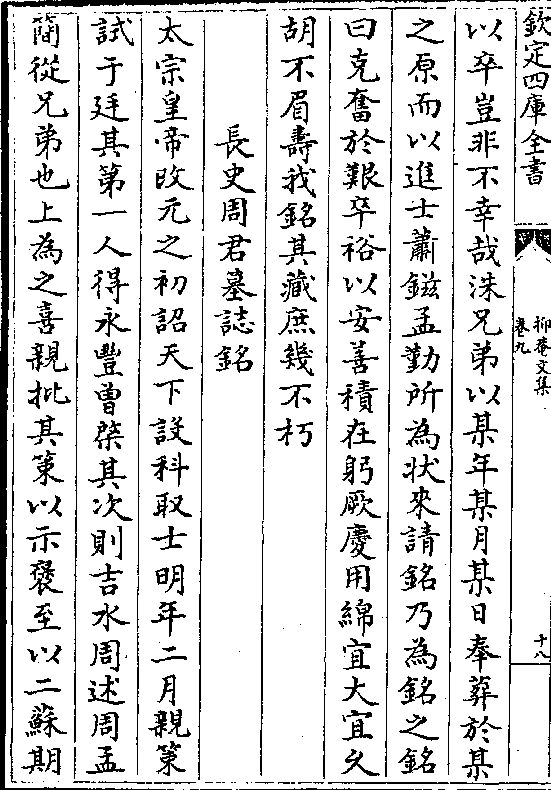 欽定四庫全書
抑菴文集
卷九
十八
以卒豈非不幸哉洙兄弟以某年某月某日奉葬於某
之原而以進士蕭鎡孟勤所為狀來請銘乃為銘之銘
曰克奮於艱卒裕以安善積在躬厥慶用綿宜大宜久
胡不眉壽我銘其藏庶幾不朽
長史周君墓誌銘
太宗皇帝改元之初詔天下設科取士明年二月親策
試于廷其第一人得永豐曾棨其次則吉水周述周孟
簡從兄弟也上為之喜親批其策以示褒至以二蘇期